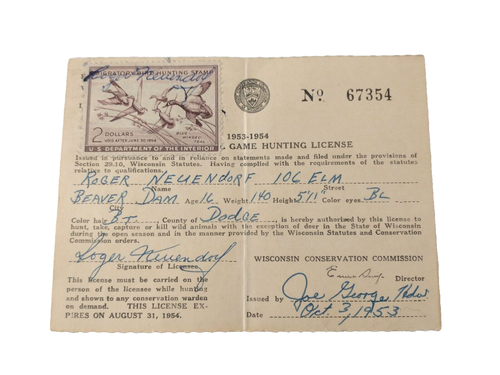 Roger Neuendorf
MIGRATORY BIRD HUNTING STAMP
BLUE-WINGED TEAL
2 DOLLARS
VOID AFTER JUNE 30, 1954
U.S. DEPARTMENT OF THE INTERIOR
No 67354
1953-1954
GAME HUNTING LICENSE
Issued in pursuance to and in reliance on statements made and filed under the provision of
Section 29.10, Wisconsin Statutes. Having complied with the requirements of the statutes
relative to qualifications.
ROGER NEUENDORF 106 ELM
Name Street
BEAVER DAM Age 16 Weight 140 Height 5'11" Color eyes BL
City
Color hair BT. County of DODGE, is hereby authorized by this license to
hunt, take, capture or kill wild animals with the exception of deer in the State of Wisconsin
during the open season and in the manner provided by the Wisconsin Statutes and Conservation
Commission orders.
Roger Neuendorf
Signature of Licensee
This license must be carried on the
person of the licensee while hunting
and shown to any conservation warden
on demand. THIS LICENSE EX-
PIRES ON AUGUST 31, 1954.
WISCONSIN CONSERVATION COMMISSION
Director
Issued by Joe George
Date Oct 3, 1953